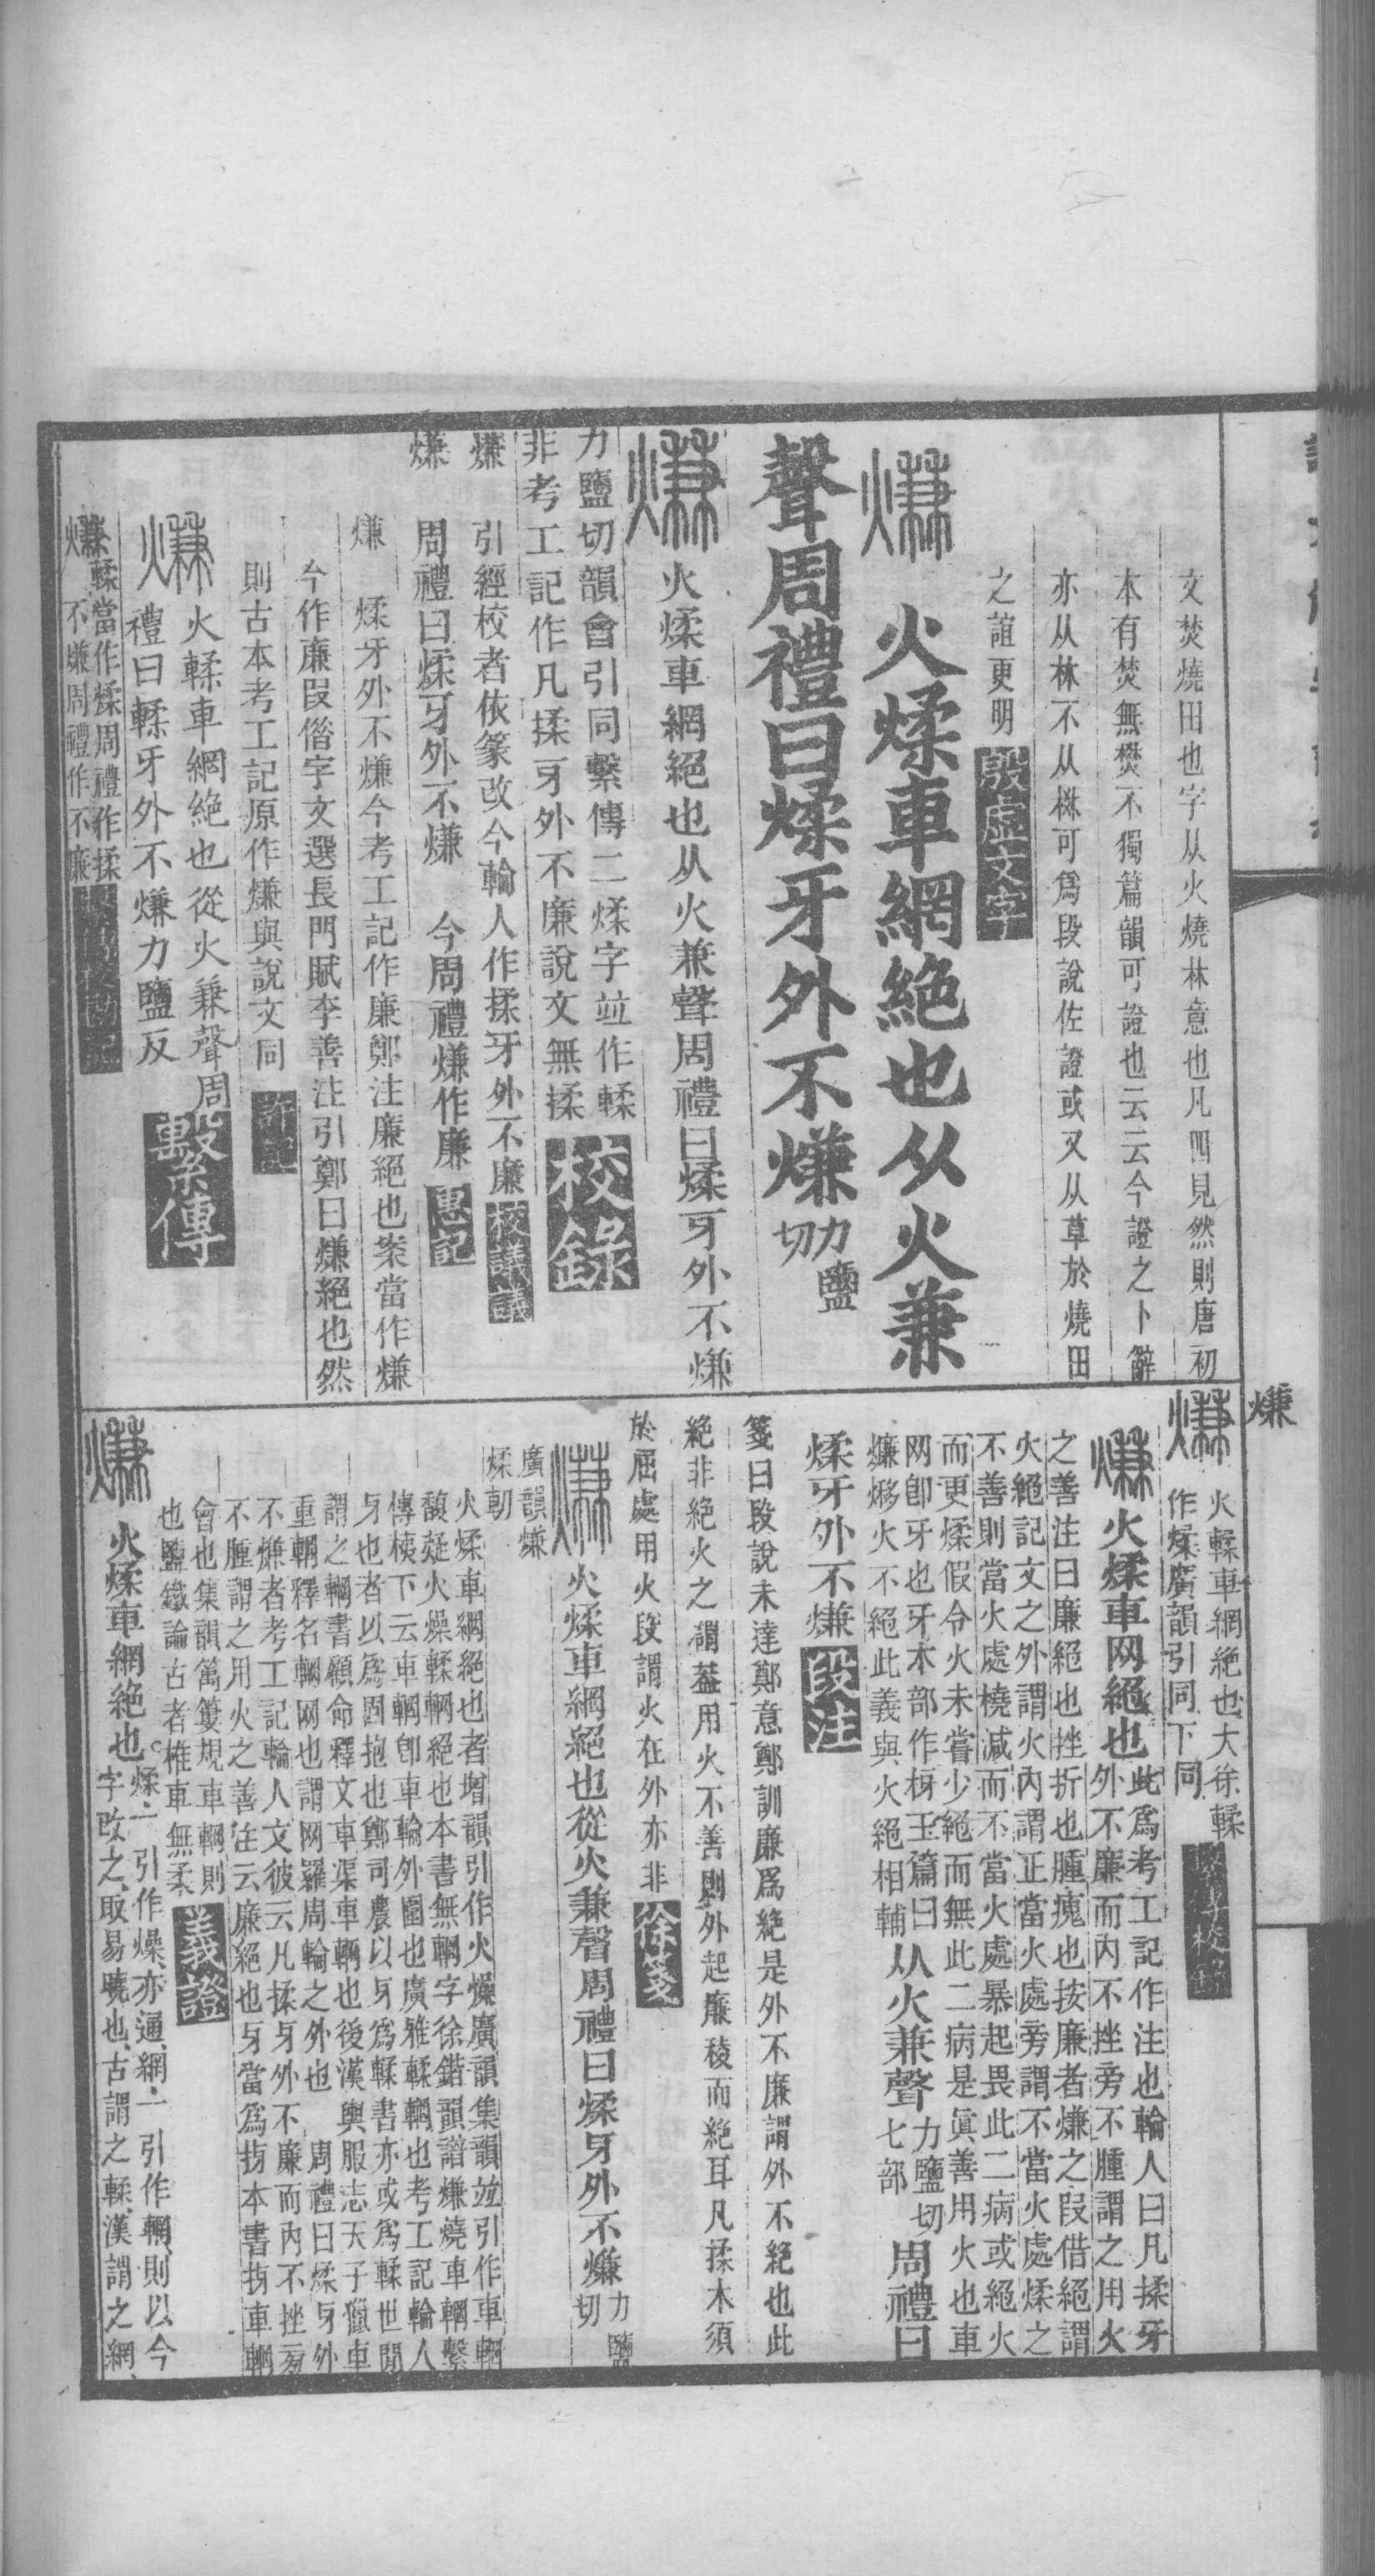 文焚燒田也字从火燒林意也凡四見然則唐初
本有焚無燓不獨篇韻可證也云云今證之卜辭
亦从林不从棥可爲段說佐證或又从草於燒田
之誼更明 殷虛文字
熑 火煣車網絕也从火兼
聲周禮曰煣牙外不熑 力鹽切
熑 火煣車網絕也从火兼聲周禮曰煣牙外不熑
力鹽切韻會引同繫傳二煣字竝作輮
非考工記作凡揉牙外不廉說文無揉 校錄
熑 引經校者依篆改今輪人作揉牙外不廉 校議議
熑 周禮曰煣牙外不熑 今周禮熑作廉 惠記
熑 煣牙外不熑今考工記作廉鄭注廉絕也案當作熑
今作廉叚借字文選長門賦李善注引鄭曰熑絕也然
則古本考工記原作熑與說文同 許記
熑 火輮車網絕也從火兼聲周
禮曰輮牙外不熑力鹽反 繫傳
熑 輮當作煣周禮作揉
不熑周禮作不廉
熑
熑 火輮車網絕也大徐輮
作煣廣韻引同下同
熑 火煣車网絕也 此爲考工記作注也輪人曰凡揉牙
外不廉而內不挫旁不腫謂之用火
之善注曰廉絕也挫折也腫瘣也按廉者熑之叚借絕謂
火絕記文之外謂火內謂正當火處旁謂不當火處煣之
不善則當火處橈減而不當火處暴起畏此二病或絕火
而更煣假令火未嘗少絕而無此二病是眞善用火也車
网卽牙也牙木部作枒玉篇曰
火不絕此義與火絕相輔 从火兼聲 力鹽切七部 周禮曰
煣牙外不熑 段注
箋曰段說未達鄭意鄭訓廉爲絕是外不廉謂外不絕也此
絕非絕火之謂葢用火不善則外起廉稜而絕耳凡揉木須
於屈處用火段謂火在外亦非 徐箋
熑 火煣車網絕也從火兼聲周禮曰煣牙外不熑 力鹽切
廣韻熑
煣輞
火煣車網絕也者增韻引作火燥廣韻集韻竝引作車輞
馥疑火燥輮輞絕也本書無輞字徐鍇韻譜熑燒車輞繫
傳桋下云車輞卽車輪外圍也廣雅輮輞也考工記輪人
牙也者以爲固抱也鄭司農以牙爲輮書亦或爲輮世閒
謂之輞書顧命釋文車渠車輞也後漢輿服志天子獵車
重輞釋名輞网也謂网羅周輪之外也 周禮曰煣牙外
不熑者考工記輪人文彼云凡揉牙外不廉而內不挫旁
不腫謂之用火之善注云廉絕也牙當爲枒本書枒車輞
會也集韻篗規車輞則
也鹽鐵論古者椎車無柔 義證
熑 火煣車網絕也 煣、一引作燥、亦通、網、一引作輞、則以今
字改之、取易曉也、古謂之輮、漢謂之網、